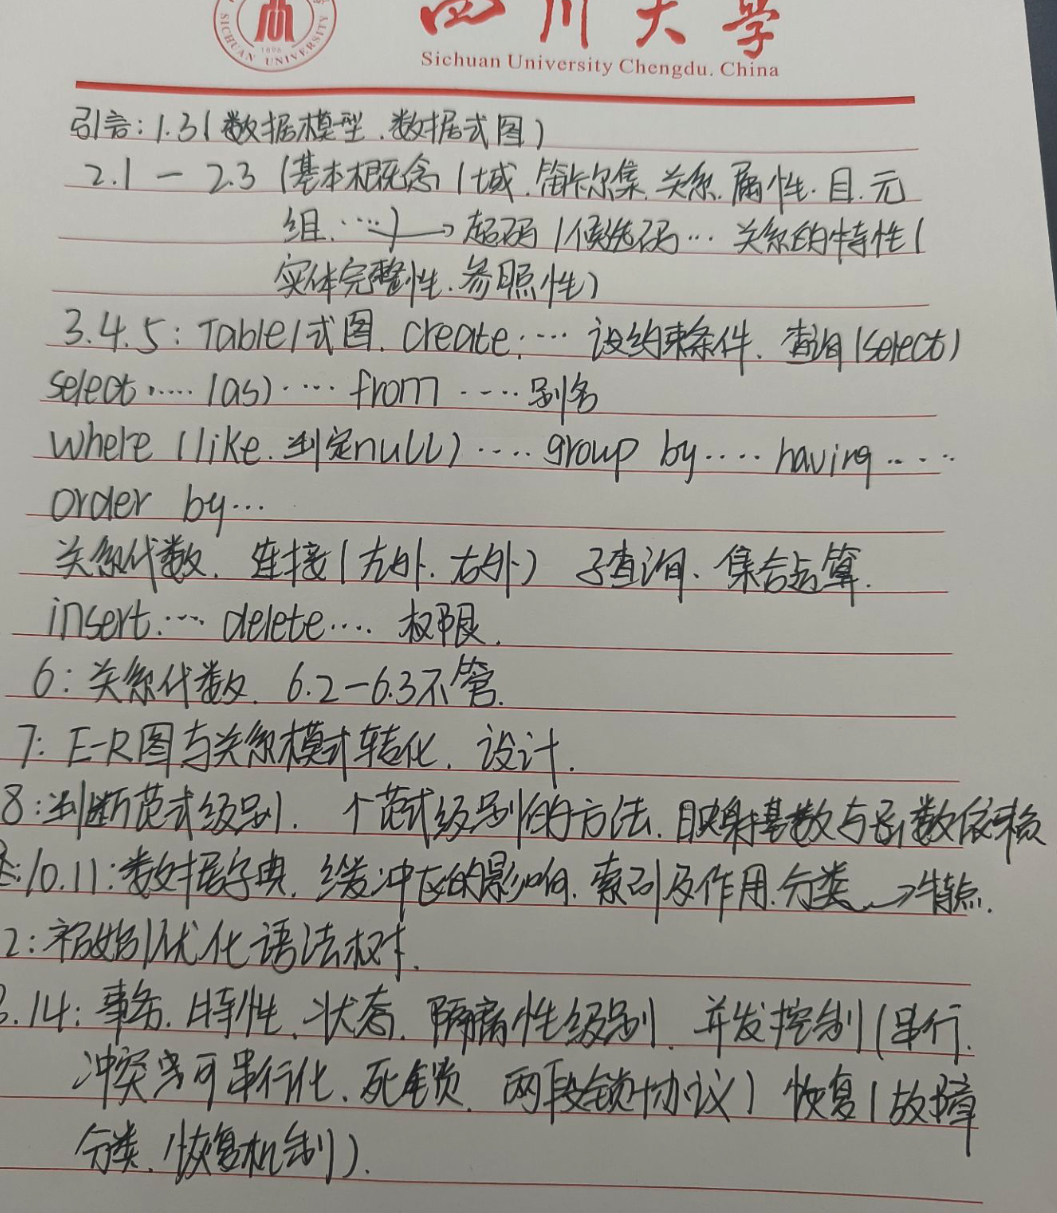 四川大学
SICHUAN UNIVERSITY
1896
Sichuan University Chengdu. China
引言: 1.3 (数据模型、数据式图)
2.1 — 2.3 (基本概念 (域、笛卡尔集、关系、属性、目、元
组、····) → 超码 (候选码··· 关系的特性 (
实体完整性、参照性)
3.4.5: Table/式图、create···· 设约束条件、查询 (select)
select ····· (as) ···· from ····· 别名
where (like、判定null) ····· group by ····· having ·····
order by ···
关系代数、连接 (左外、右外) 子查询、集合运算.
insert···· delete···· 权限.
6: 关系代数、6.2—6.3不管.
7: E-R图与关系模式转化、设计.
8: 判断范式级别、个范式级别的方法、映射基数与函数依赖
10.11: 数据字典、缓冲区的影响、索引及作用、分类 → 特点.
2: 初始/优化语法树.
3.14: 事务、特性、状态、隔离性级别、并发控制 (串行、
冲突可串行化、死锁、两段锁协议) 恢复 (故障
分类、恢复机制).